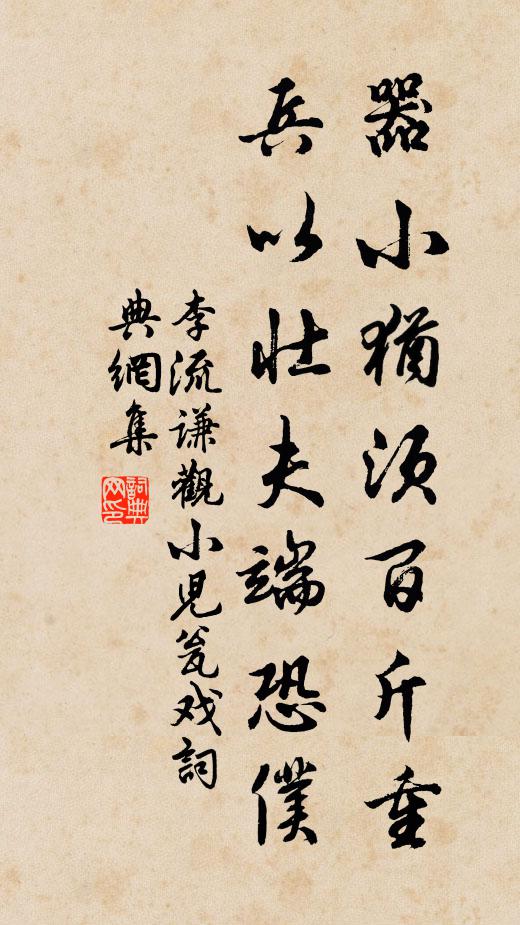 器小猶須百斤重
兵以壯夫端恐僕
李流謙觀小児瓮戏詞
典網集
詞典网印